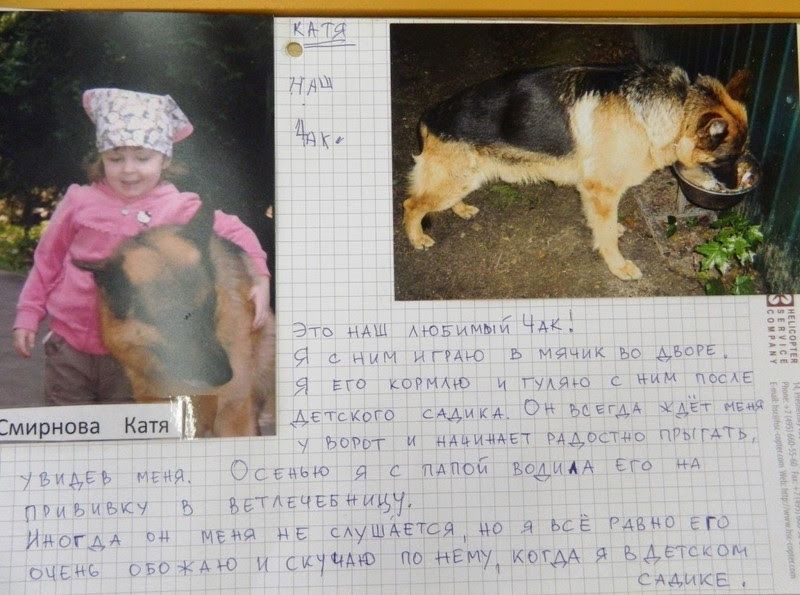 КАТЯ
НАШ
ЧАК.
Смирнова Катя
ЭТО НАШ ЛЮБИМЫЙ ЧАК!
Я С НИМ ИГРАЮ В МЯЧИК ВО ДВОРЕ.
Я ЕГО КОРМЛЮ И ГУЛЯЮ С НИМ ПОСЛЕ
ДЕТСКОГО САДИКА. ОН ВСЕГДА ЖДЁТ МЕНЯ
У ВОРОТ И НАЧИНАЕТ РАДОСТНО ПРЫГАТЬ,
УВИДЕВ МЕНЯ. ОСЕНЬЮ Я С ПАПОЙ ВОДИЛА ЕГО НА
ПРИВИВКУ В ВЕТЛЕЧЕБНИЦУ.
ИНОГДА ОН МЕНЯ НЕ СЛУШАЕТСЯ, НО Я ВСЁ РАВНО ЕГО
ОЧЕНЬ ОБОЖАЮ И СКУЧАЮ ПО НЕМУ, КОГДА Я В ДЕТСКОМ
САДИКЕ.
HELICOPTER
SERVICE
COMPANY